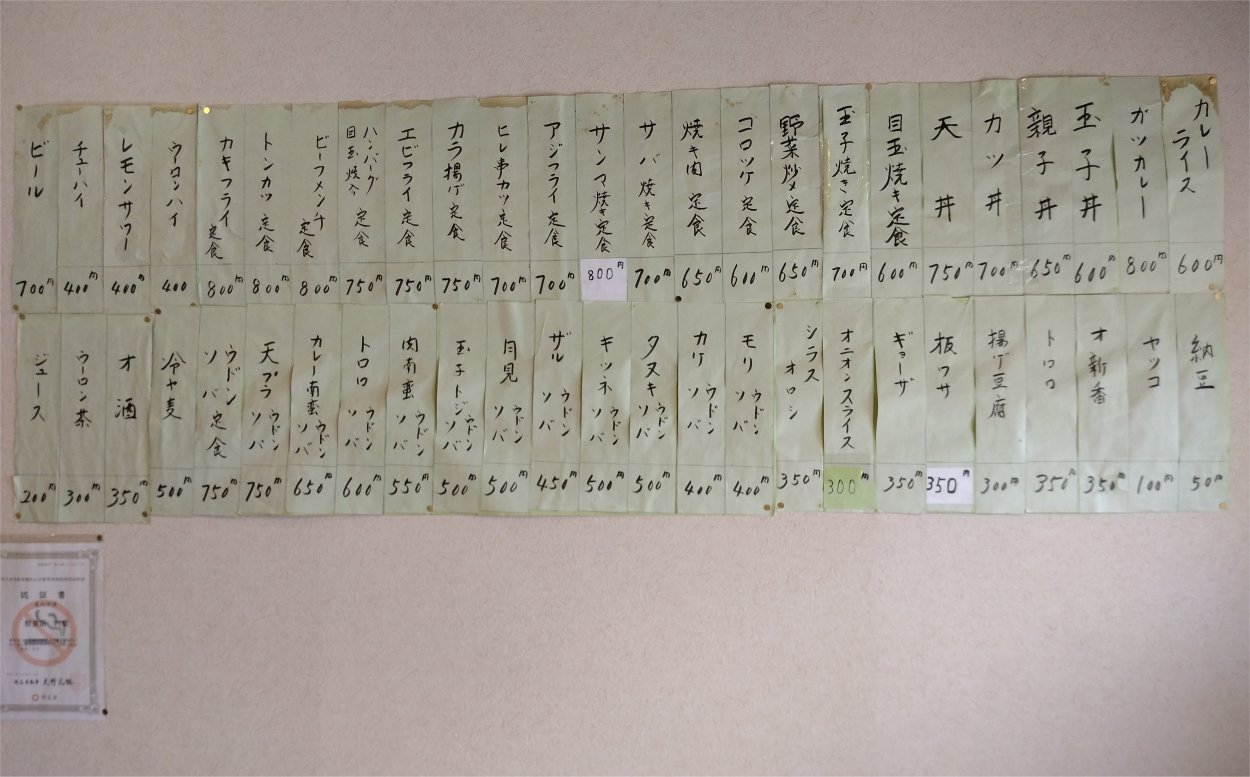 カレーライス 600円
カツカレー 800円
玉子丼 600円
親子丼 650円
カツ丼 700円
天丼 750円
目玉焼き定食 600円
玉子焼き定食 700円
野菜炒メ定食 650円
コロッケ定食 600円
焼キ肉定食 650円
サバ焼き定食 700円
サンマ焼き定食 800円
アジフライ定食 700円
ヒレ串カツ定食 700円
カラ揚げ定食 750円
エビフライ定食 750円
ハンバーグ目玉焼介定食 750円
ビーフメンチ定食 800円
トンカツ定食 800円
カキフライ定食 800円
ウーロンハイ 400
レモンサワー 400円
チューハイ 400円
ビール 700円
納豆 50円
ヤッコ 100円
オ新香 350円
トロロ 350円
揚ゲ豆腐 300円
板ワサ 350円
ギョーザ 350円
オニオンスライス 300円
シラスオロシ 350円
モリウドンソバ 400円
カケウドンソバ 400円
タヌキウドンソバ 500円
キツネウドンソバ 500円
ザルウドンソバ 450円
月見ウドンソバ 500円
玉子トジウドンソバ 500円
肉南蛮ウドンソバ 550円
トロロウドンソバ 600円
カレー南蛮ウドンソバ 650円
天プラウドンソバ 750円
ウドンソバ定食 750円
冷ヤ麦 500円
オ酒 350円
ウーロン茶 300円
ジュース 200円
認証書